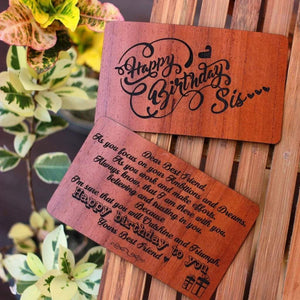 Happy
Birthday
Sis...
Dear Best Friend,
As you focus on your Ambitions and Dreams,
As you give and make efforts,
Always know that I am here with you
believing and rooting to you
Because
I'm sure that you will Outshine and Triumph.
Happy birthday to you
Yours Best Friend